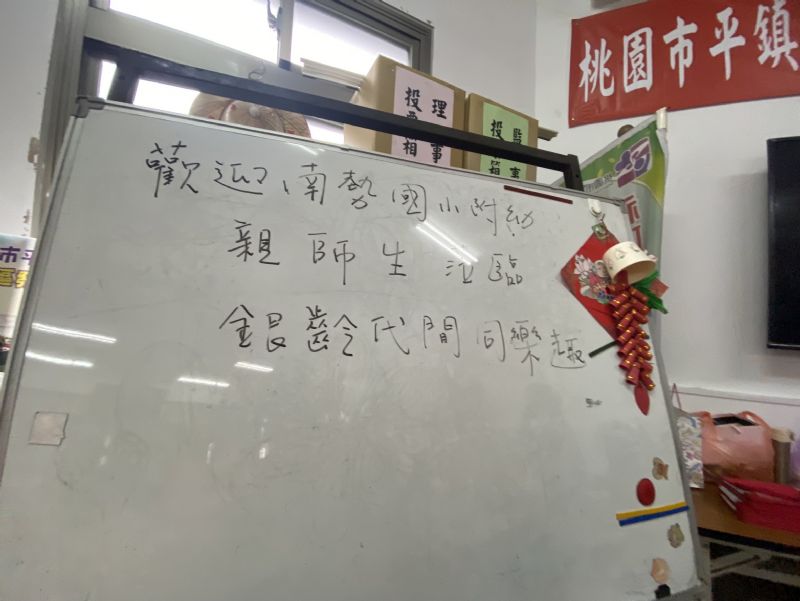 桃園市平鎮
理事
投票箱
監事
投票箱
歡迎南勢國小附幼
親師生蒞臨
銀齡代間同樂趣
市平